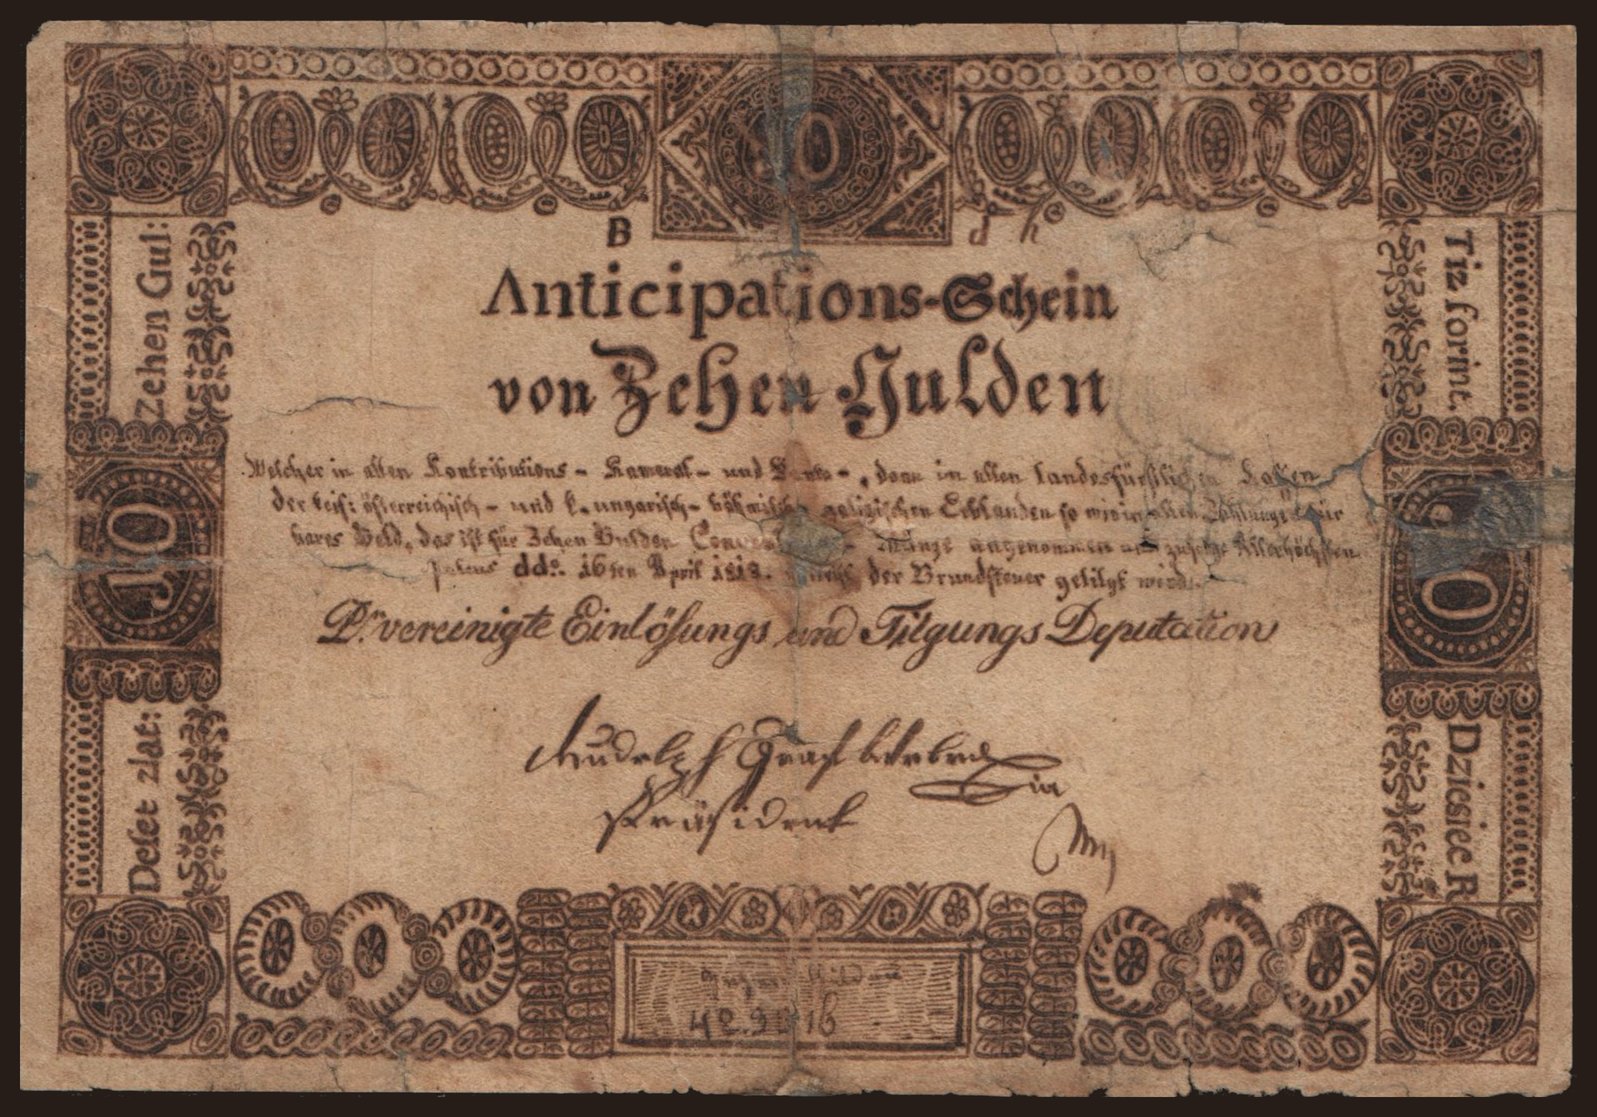 10
B d h
Anticipations-Schein
von Zehen Gulden
Welcher in allen Kontributions - Kameral - und Banko -, dann in allen Landesfürstlichen Kassen
der keis: österreichisch - und k. ungarisch - böhmisch galizischen Erblanden so wie in allen Zahlungen für
bares Geld, das ist für Zehen Gulden angenommen zufolge Allerhöchsten
Patens ddo. 16ten April 1813. der Grundsteuer getilgt wird.
Dn. vereinigte Einlösungs und Tilgungs Deputation
Rudolph Graf
Präsident
Zehen Gul:
10
Deset zlat:
Tiz forint.
0
Dziesiec R